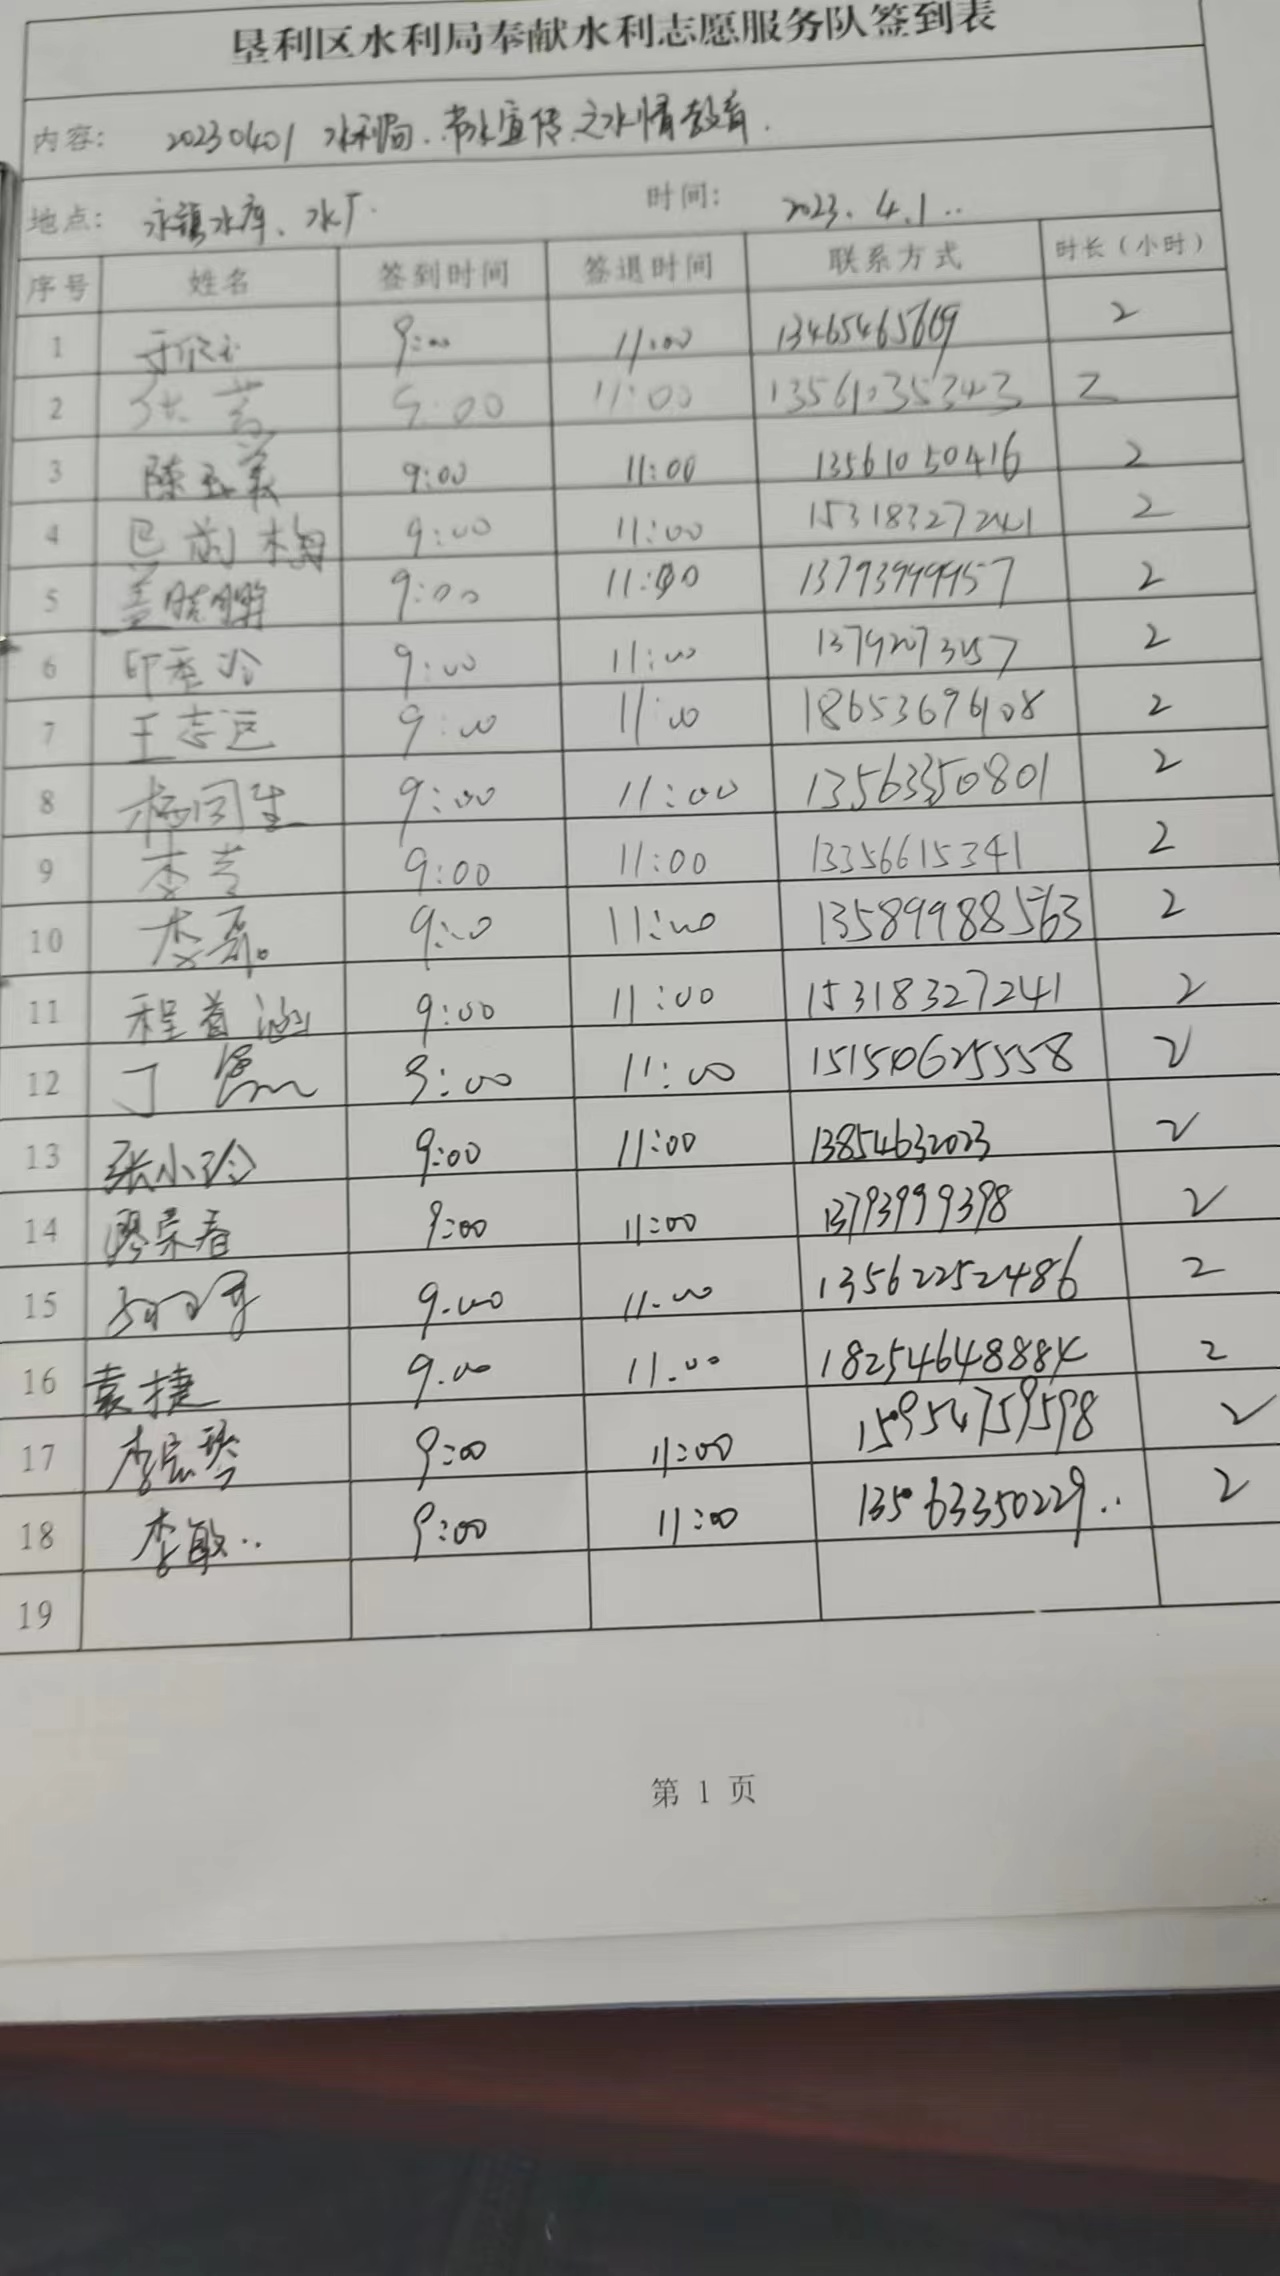 垦利区水利局奉献水利志愿服务队签到表
内容: 20230401 水利局.节水宣传之水情教育.
地点: 永镇水库、水厂. 时间: 2023.4.1..
序号 姓名 签到时间 签退时间 联系方式 时长(小时)
1 9:00 11:00 13465465669 2
2 张 9:00 11:00 13561035343 2
3 陈玉美 9:00 11:00 13561050416 2
4 巴前梅 9:00 11:00 15318327241 2
5 盖 9:00 11:00 13793999957 2
6 印秀玲 9:00 11:00 2
7 王志远 9:00 11:00 2
8 杨同生 9:00 11:00 13563350801 2
9 李 9:00 11:00 13356615341 2
10 李磊. 9:00 11:00 13589988563 2
11 程 涵 9:00 11:00 15318327241 2
12 丁 9:00 11:00 15150625558 2
13 张小玲 9:00 11:00 13854632023 2
14 廖荣春 9:00 11:00 13793999398 2
15 9.00 11.00 13562252486 2
16 袁捷 9.00 11.00 18254648884 2
17 李宏琴 9:00 11:00 15954759598 2
18 李敏.. 9:00 11:00 13563350229.. 2
19
第 1 页